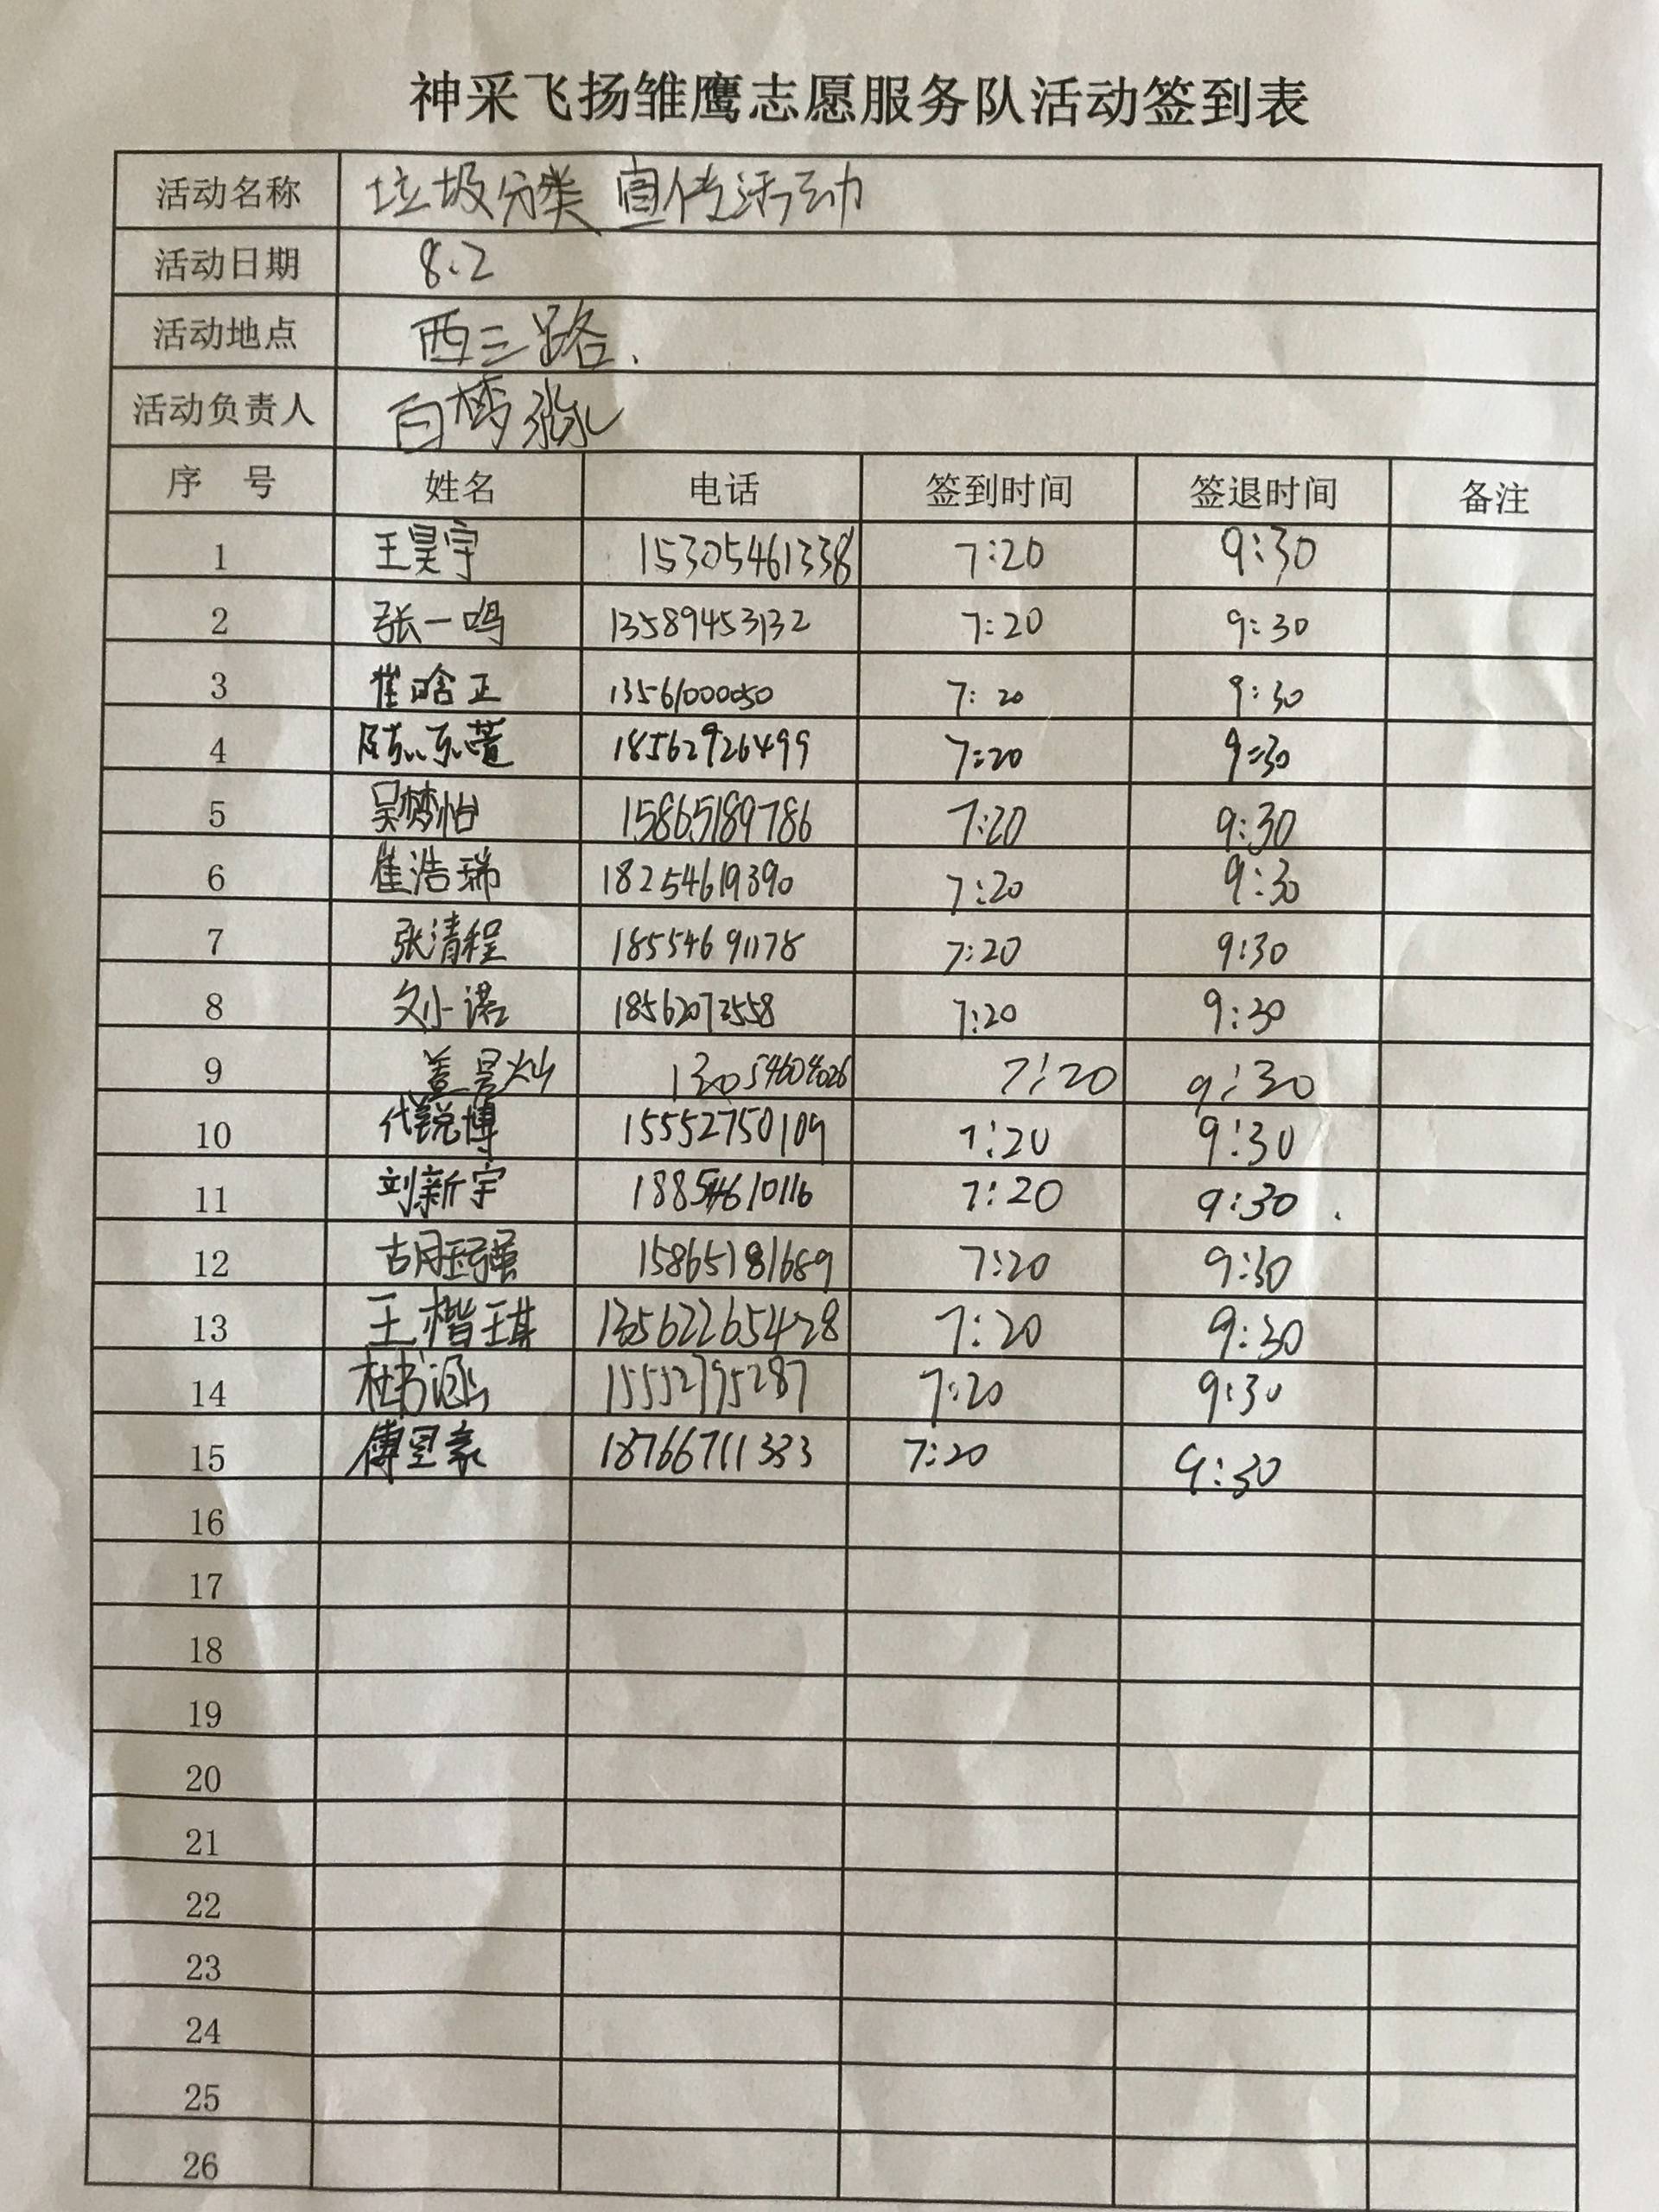 神采飞扬雏鹰志愿服务队活动签到表
活动名称 垃圾分类宣传活动
活动日期 8.2
活动地点 西三路.
活动负责人 白梦
序号 姓名 电话 签到时间 签退时间 备注
1 王昊宇 15305461338 7:20 9:30
2 张一鸣 13589453132 7:20 9:30
3 崔晗正 13561000050 7:20 9:30
4 陈东萱 18562926499 7:20 9:30
5 吴梦怡 15865189786 7:20 9:30
6 崔浩瑞 18254619390 7:20 9:30
7 张清程 18554691178 7:20 9:30
8 文小诺 18562072558 7:20 9:30
9 盖昱灿 13054604026 7:20 9:30
10 代锐博 15552750109 7:20 9:30
11 刘新宇 18854610116 7:20 9:30
12 胡珏强 15865181689 7:20 9:30
13 王楷琪 13562265428 7:20 9:30
14 杜书涵 15552795287 7:20 9:30
15 傅昱豪 18766711333 7:20 9:30
16
17
18
19
20
21
22
23
24
25
26